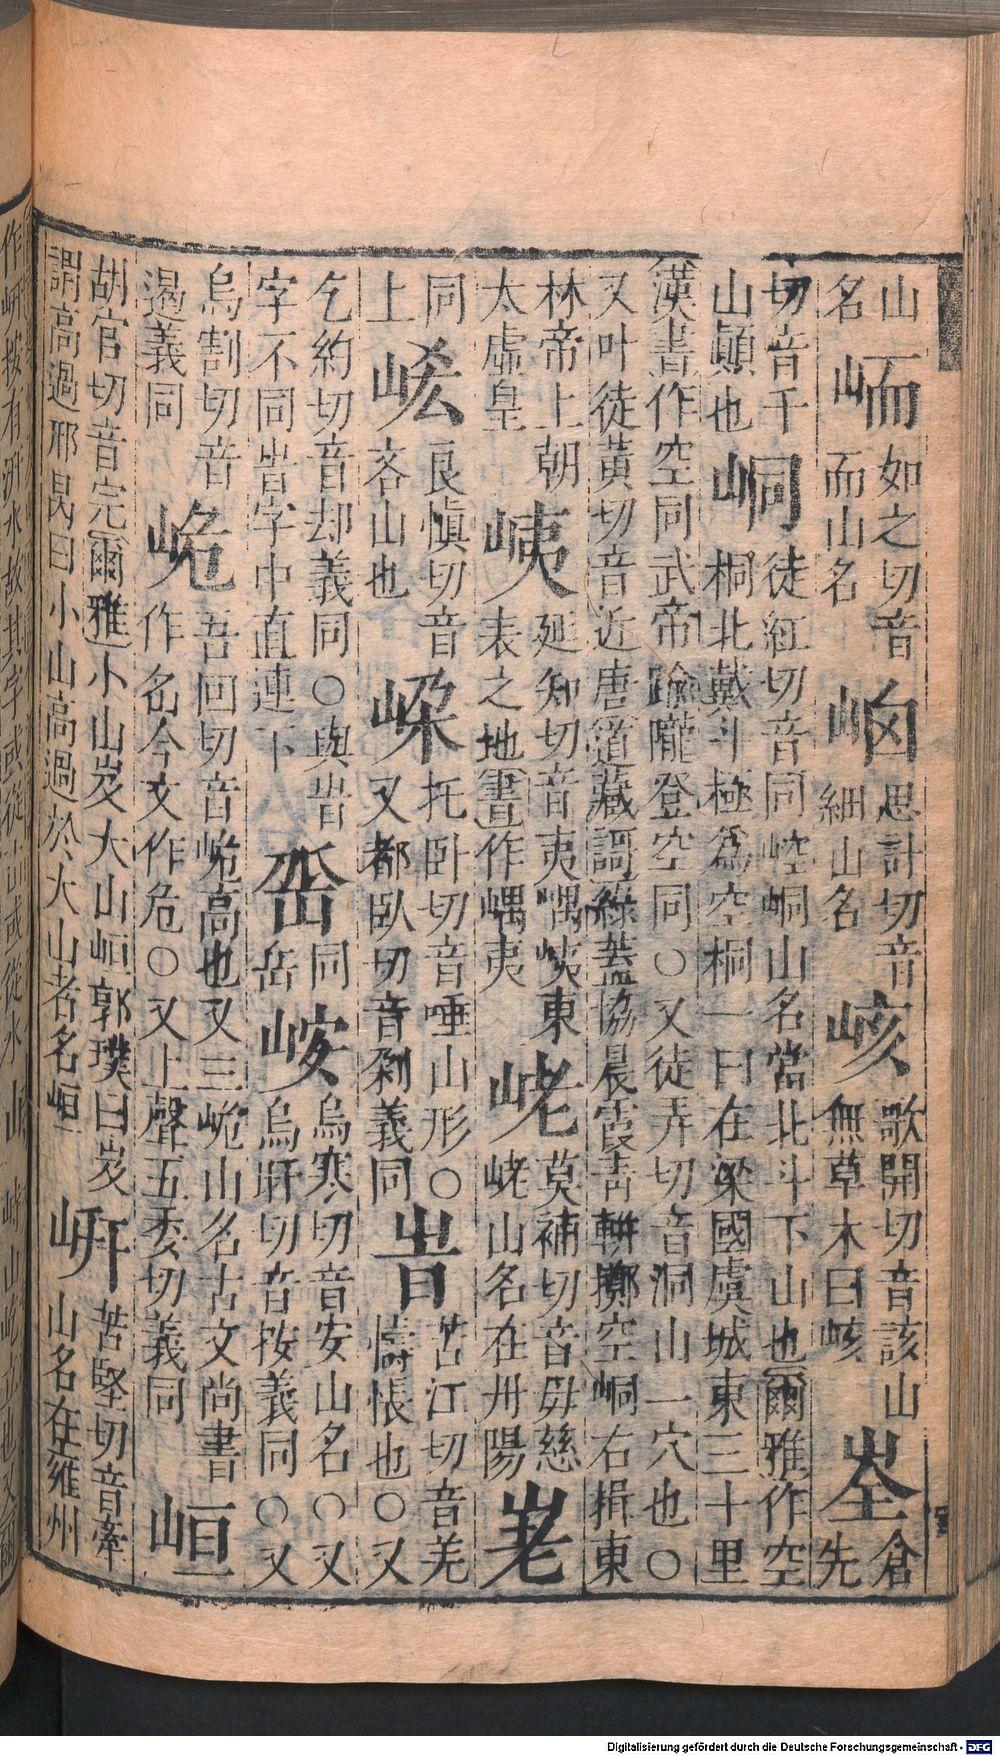 山
名
峏
如之切音
而山名
思計切音
細山名
峐
歌開切音該山
無草木曰峐
峑
倉
先
切音千
山顚也
峒
徒紅切音同崆峒山名當北斗下山也爾雅作空
桐北戴斗極爲空桐一曰在梁國虞城東三十里
漢書作空同武帝踰隴登空同○又徒弄切音洞山一穴也○
又叶徒黃切音近唐道藏謌綠葢協晨霞靑軿擲空峒右揖東
林帝上朝
太虛皇
峓
延知切音夷嵎峓東
表之地書作嵎夷
莫補切音毋慈
山名在丹陽
同
上
良愼切音
吝山也
托卧切音唾山形○
又都臥切音剁義同
苦江切音羌
幬帳也○又
乞約切音却義同○與㫺
字不同㫺字中直連下
同
岳
峖
烏寒切音安山名○又
烏旰切音按義同○又
烏割切音
遏義同
峗
吾回切音峗高也又三峗山名古文尚書
作今文作危○又上聲五委切義同
峘
胡官切音完爾雅小山岌大山峘郭璞曰岌
謂高過邢昺曰小山高過於大山者名峘
岍
苦堅切音牽
山名在雍州
作岍按有汧水故其字或從山或從水
Digitalisierung gefördert durch die Deutsche Forschungsgemeinschaft - DFG